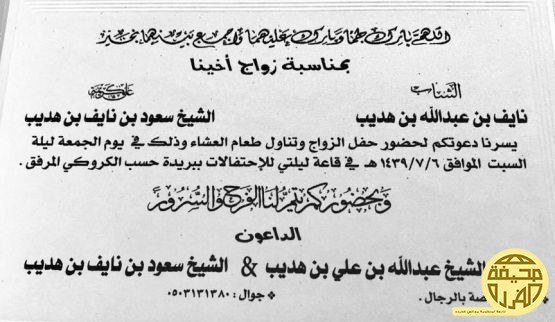 اللهم بارك لهما وبارك عليهما واجمع بينهما بخير
بمناسبة زواج أخينا
الشاب
على كريمة
نايف بن عبدالله بن هديب
الشيخ سعود بن نايف بن هديب
يسرنا دعوتكم لحضور حفل الزواج وتناول طعام العشاء وذلك في يوم الجمعة ليلة
السبت الموافق ١٤٣٩/٧/٦ هـ في قاعة ليلتي للإحتفالات ببريدة حسب الكروكي المرفق .
وبحضوركم يتم لنا الفرح والسرور
الداعون
الشيخ عبدالله بن علي بن هديب & الشيخ سعود بن نايف بن هديب
صة بالرجال .
جوال : ٠٥٠٣١٣١٣٨٠
صحيفة